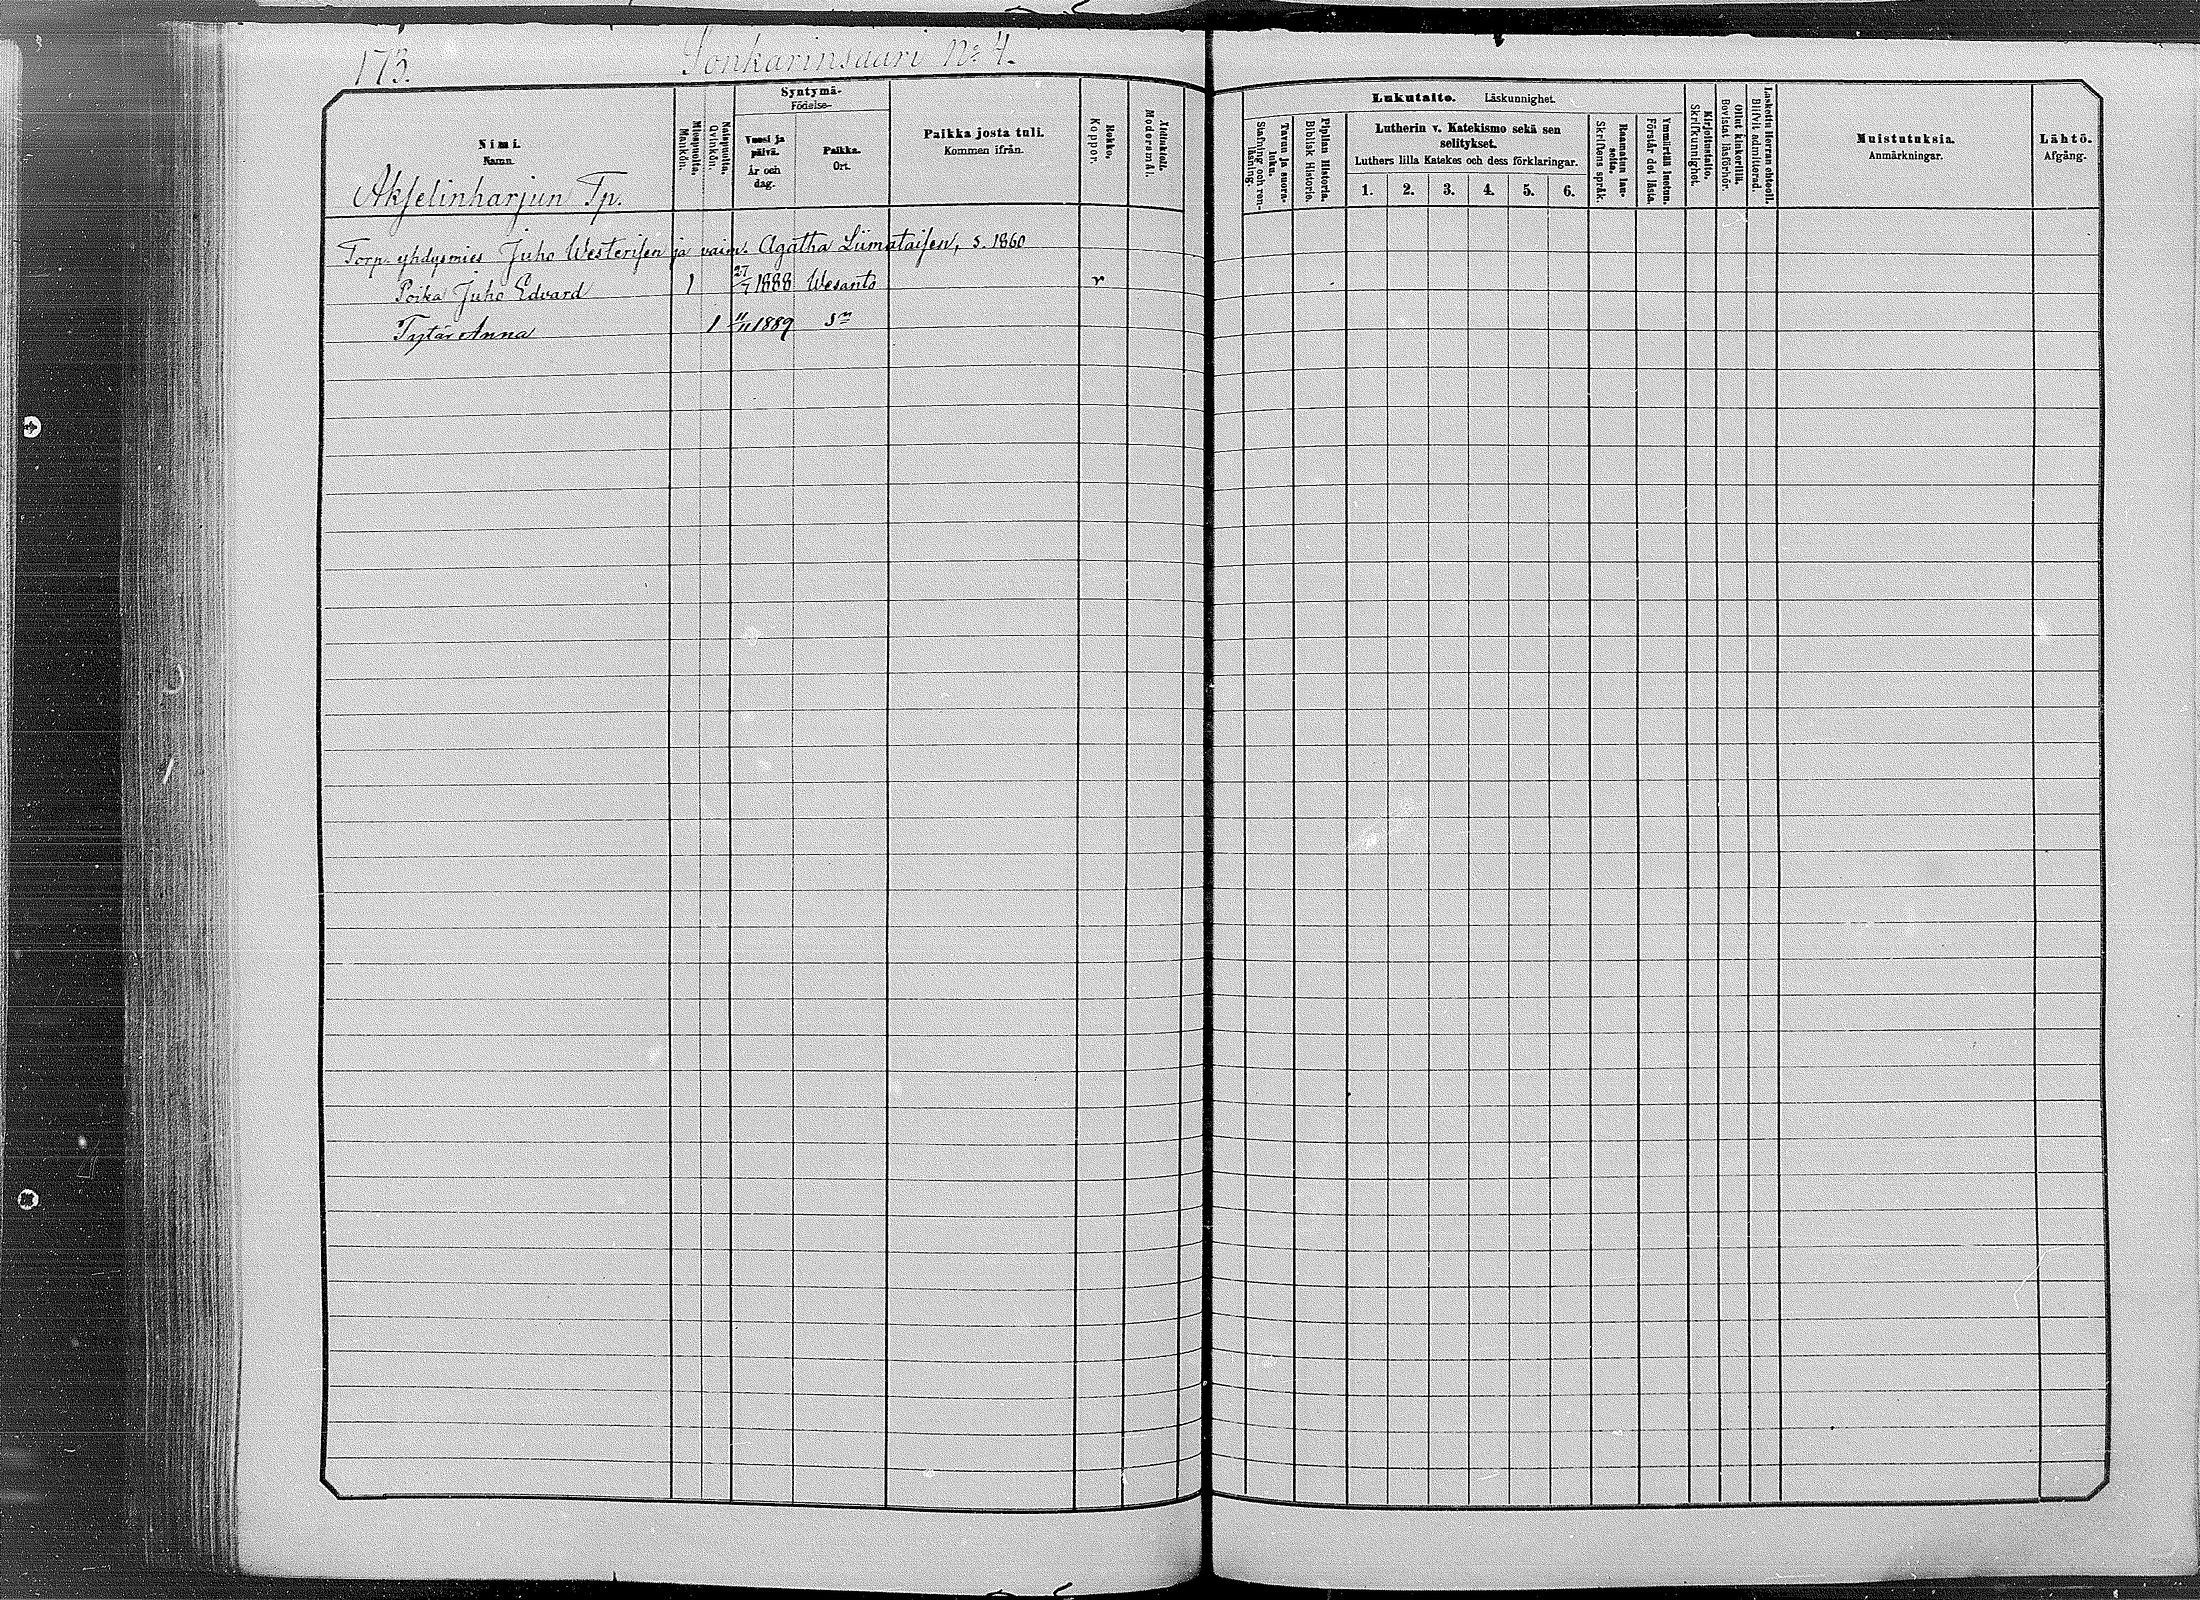 173. Sonkarinsaari No 4.
Nimi.
Namn.
Miespuolia.
Mankön.
Naispuolia.
Qvinkön.
Syntymä-
Födelse-
Vuosi ja
päivä.
År och
dag.
Paikka.
Ort.
Paikka josta tuli.
Kommen ifrån.
Rokko.
Koppor.
Äidinkieli.
Modersmål.
Akselinharjun Tp.
Torp. yhdysmies Juho Westerisen ja vaim. Agatha Liimataisen, s. 1860
Poika Juho Edvard 1 27/7 1888 Wesanto r
Tytär Anna 1 11/11 1889 sm
Lukutaito. Läskunnighet.
Tavuu ja suoraluku.
Stafning och renläsning.
Piplian Historia.
Biblisk Historia.
Lutherin v. Katekismo sekä sen
selitykset.
Luthers lilla Katekes och dess förklaringar.
1. 2. 3. 4. 5. 6.
Raamatun lauseita.
Skriftens språk.
Ymmärtää luetun.
Förstår det lästa.
Kirjoitustaito.
Skrifkunnighet.
Ollut kinkerillä.
Bevistat läsförhör.
Laskettu Herran ehtooll.
Blifvit admitterad.
Muistutuksia.
Anmärkningar.
Lähtö.
Afgång.